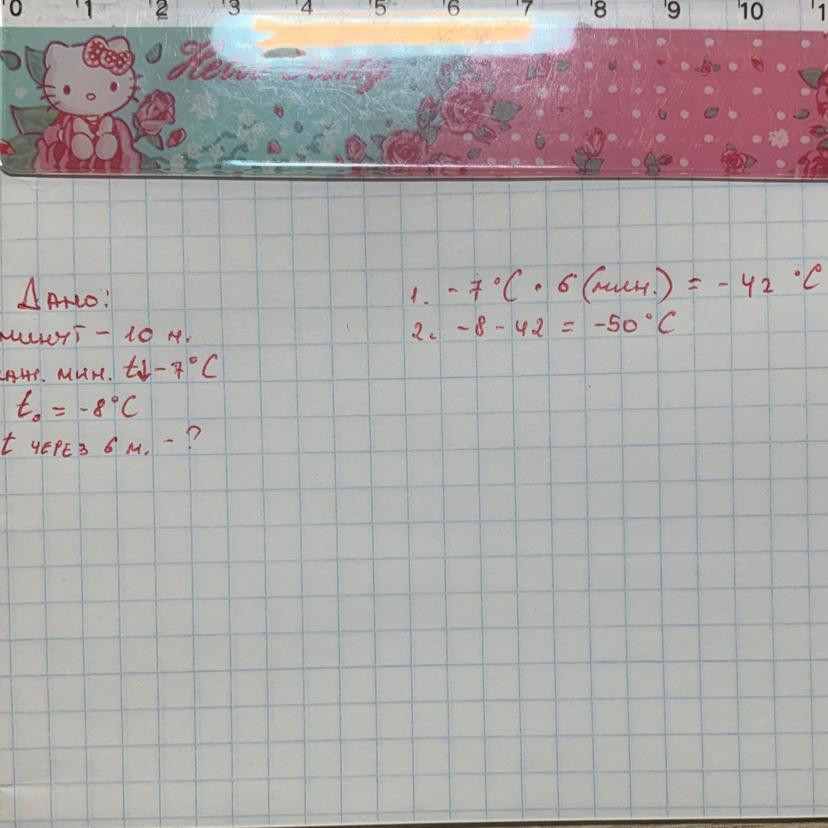 0 1 2 3 4 5 6 7 8 9 10 1
Hello Kitty
Дано:
минут – 10 м.
аж. мин. t↓ –7°C
t₀ = -8°C
t через 6 м. – ?
1. -7°C · 6 (мин.) = -42 °C
2. -8 - 42 = -50°C